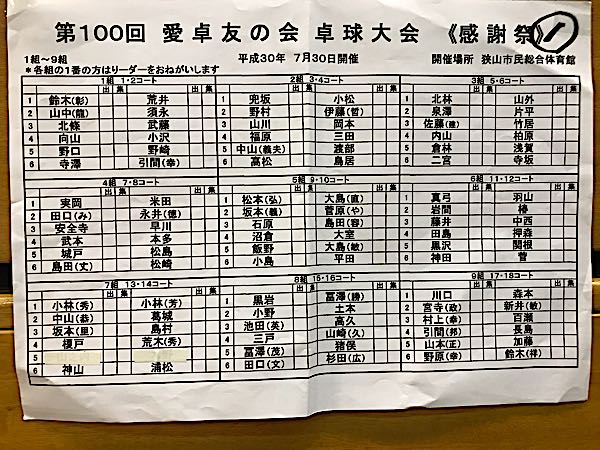 第100回 愛卓友の会 卓球大会 《感謝祭》 1
1組～9組 平成30年 7月30日開催 開催場所 狭山市民総合体育館
＊各組の1番の方はリーダーをおねがいします
1組 1・2コート
出 集 出 集
1 鈴木(彰) 荒井
2 山中(龍) 須永
3 北條 武藤
4 向山 小沢
5 野口 野崎
6 寺澤 引間(幸)
2組 3・4コート
出 集 出 集
1 兜坂 小松
2 野村 伊藤(哲)
3 山川 岡本
4 福原 三田
5 中山(義夫) 渡部
6 高松 鳥居
3組 5・6コート
出 集 出 集
1 北林 山外
2 泉澤 片平
3 佐藤(隆) 竹居
4 内山 柏原
5 倉林 浅賀
6 二宮 寺坂
4組 7・8コート
出 集 出 集
1 実岡 米田
2 田口(み) 永井(徳)
3 安全寺 早川
4 武本 本多
5 城戸 松島
6 島田(丈) 松崎
5組 9・10コート
出 集 出 集
1 松本(弘) 大島(直)
2 坂本(義) 菅原(や)
3 石原 島田(容)
4 沼倉 大室
5 飯野 大島(敏)
6 小島 平田
6組 11・12コート
出 集 出 集
1 真弓 羽山
2 岩間 椿
3 藤井 中西
4 田島 押森
5 黒沢 関根
6 神田 菅
7組 13・14コート
出 集 出 集
1 小林(秀) 小林(芳)
2 中山(恭) 葛城
3 坂本(里) 島村
4 榎戸 荒木(秀)
5
6 神山 浦松
8組 15・16コート
出 集 出 集
1 黒岩 冨澤(勝)
2 小野 土本
3 池田(英) 高久
4 三戸 山崎(久)
5 冨澤(茂) 猪俣
6 田口(文) 杉田(広)
9組 17・18コート
出 集 出 集
1 川口 森本
2 宮寺(政) 新井(敏)
3 村上(幸) 百瀬
4 引間(邦) 長島
5 山本(正) 加藤
6 野原(幸) 鈴木(祥)